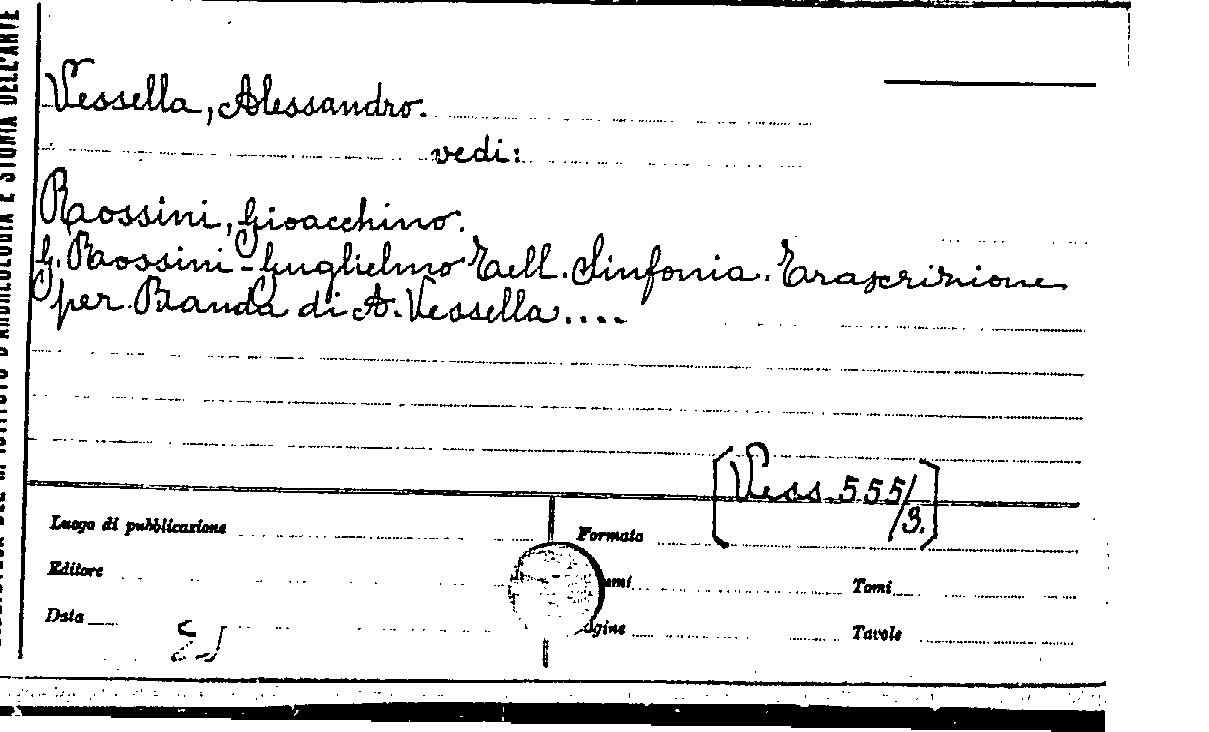 Vessella, Alessandro.
vedi:
Rossini, Gioacchino.
G. Rossini - Guglielmo Tell. Sinfonia. Trascrizione
per Banda di A. Vessella....
[Vess. 555/3.]
Luogo di pubblicazione
Formato
Editore
umi
Tomi
Data
agine
Tavole
D'ARCHEOLOGIA E STORIA DELL'ARTE